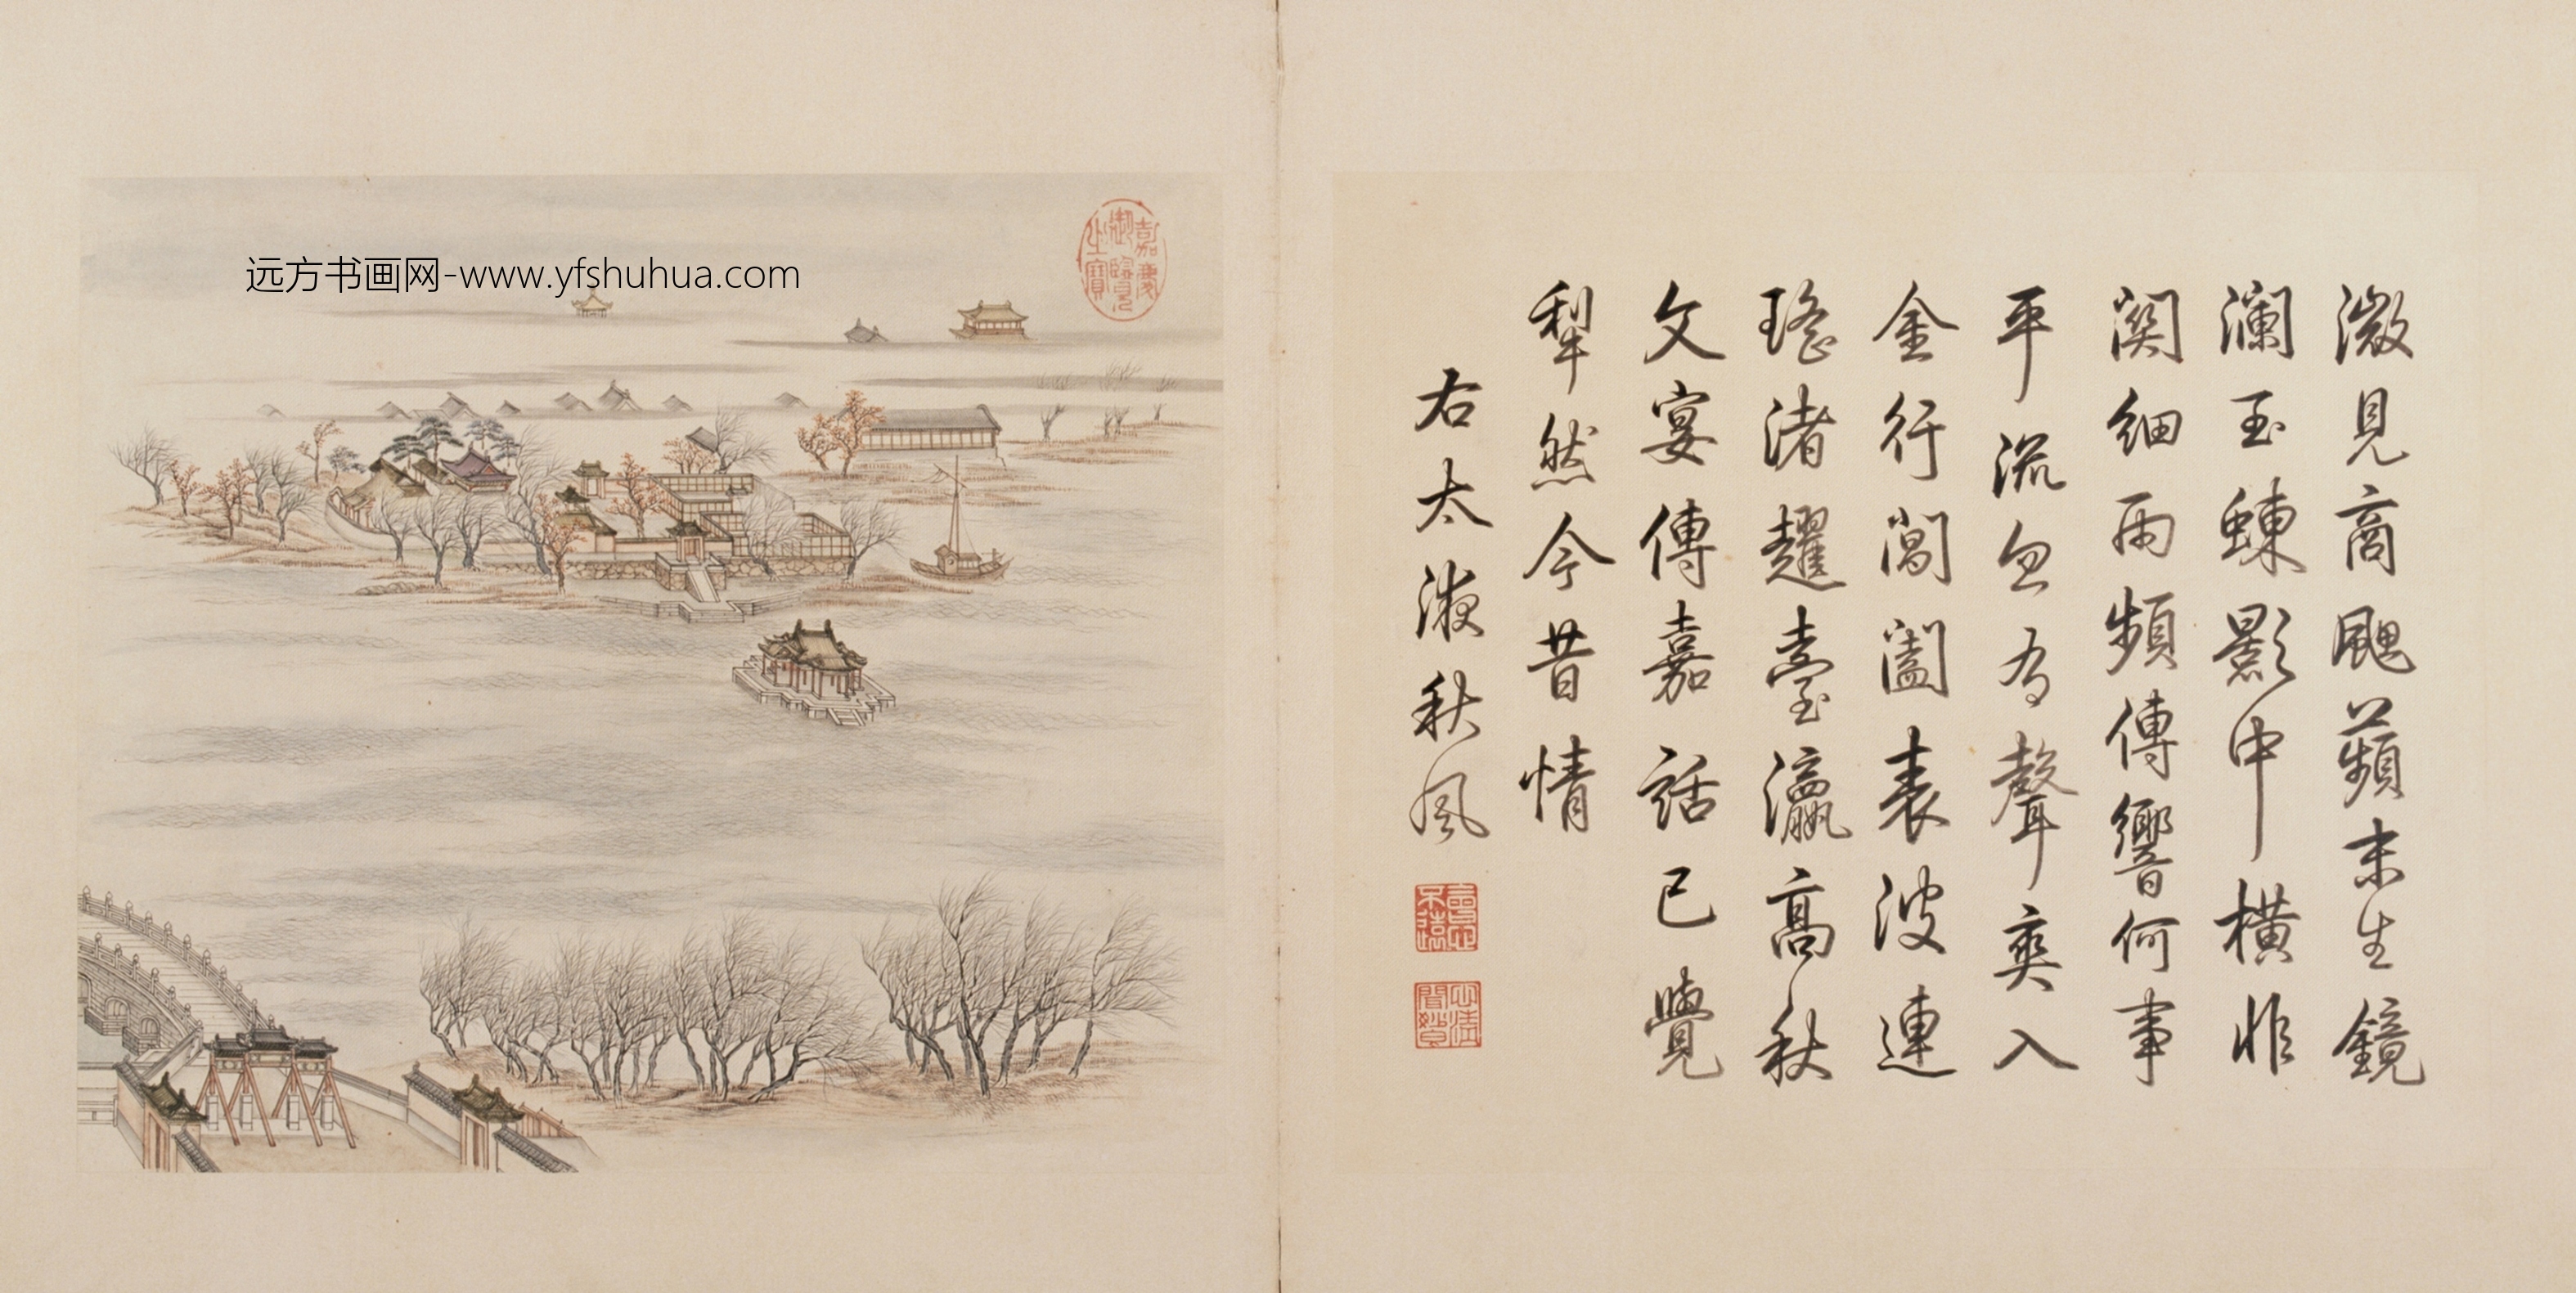 远方书画网-www.yfshuhua.com
嘉慶御覽之寶
微見商颸蘋末生鏡
瀾玉蝀影中橫非
関細雨頻傳響何事
平流忽有聲爽入
金行閶闔表波連
瑤渚趯臺瀛高秋
文宴傳嘉話已覺
犂然今昔情
右太液秋風